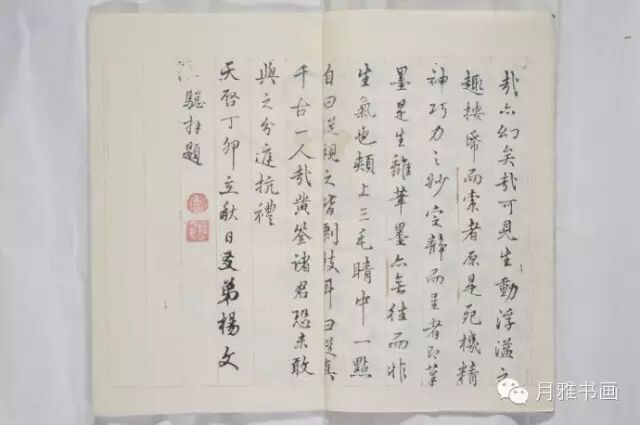 哉亦幻矣哉可見生動浮溢之
趣按帋而索者原是死機精
神巧力之妙空靜而呈者即筆
墨是生離筆墨亦無往而非
生氣也頰上三毛睛中一點
自之皆剩技耳曰真
千古一人哉黃筌諸君恐未敢
與之分庭抗禮
天啓丁卯立秋日友弟楊文
驄拜題
月雅书画